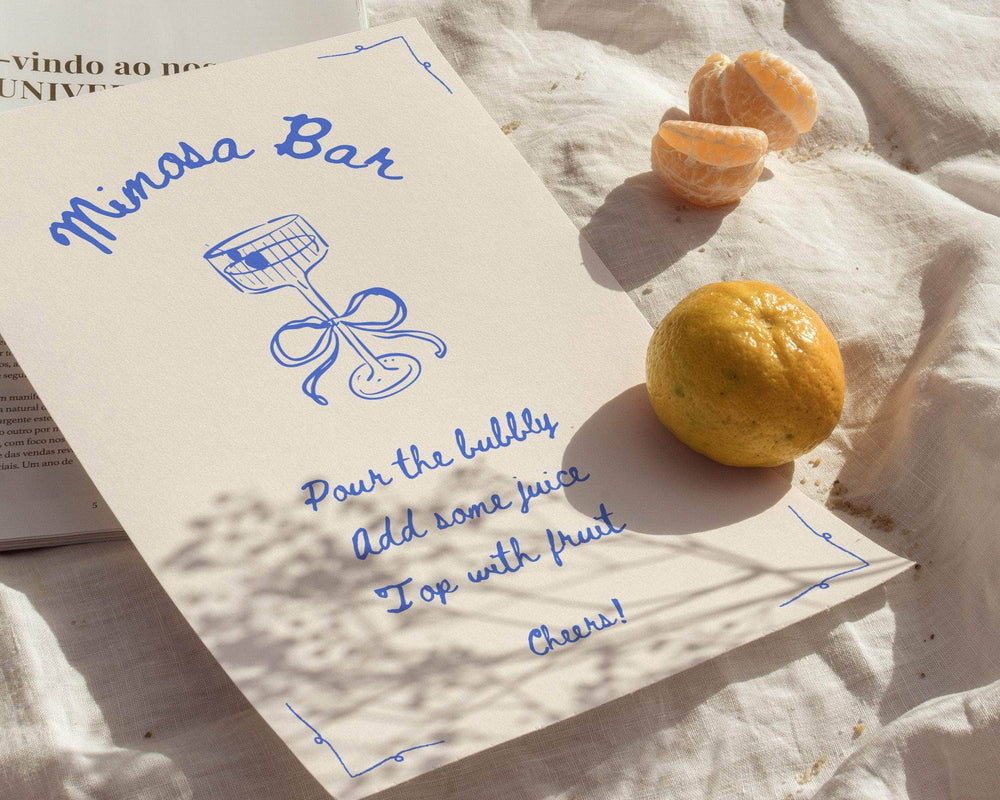 -vindo ao nos
UNIVE
Mimosa Bar
Pour the bubbly
Add some juice
Top with fruit
Cheers!
manifes
natural d
urgente este
o outro por n
, com foco nos
das vendas rev
ciais. Um ano de
5